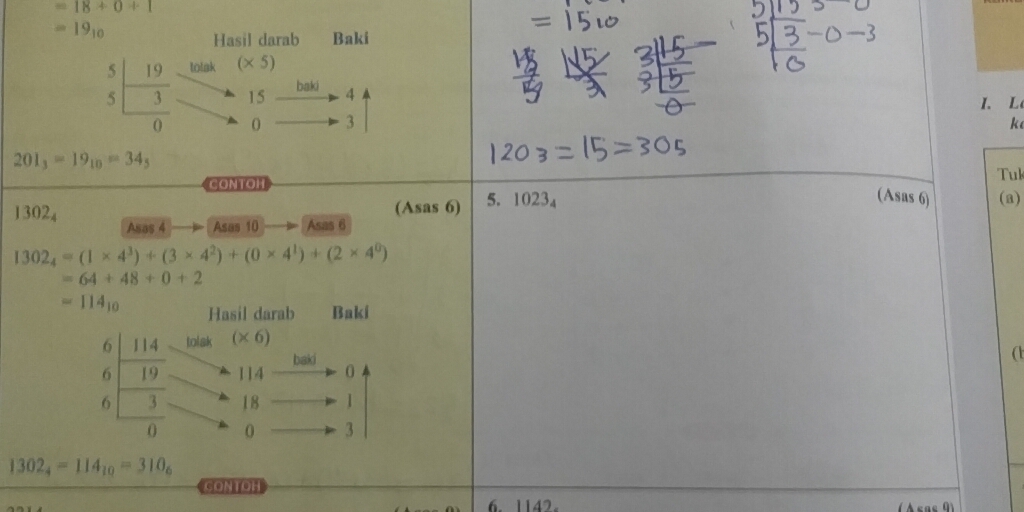 = 18 + 0 + 1
= 19₁₀
Hasil darab Baki
(× 5)
5 19 tolak
15 baki 4
5 3
0 3
0
201₃ = 19₁₀ = 34₅
CONTOH
1302₄ (Asas 6)
Asas 4 Asas 10 Asas 6
1302₄ = (1 × 4³) + (3 × 4²) + (0 × 4¹) + (2 × 4⁰)
= 64 + 48 + 0 + 2
= 114₁₀
Hasil darab Baki
(× 6)
6 114 tolak
114 baki 0
6 19
18 1
6 3
0 3
0
1302₄ = 114₁₀ = 310₆
CONTOH
(Asas 9)
= 15₁₀
3 15
3 5
0
5 15
5 3 - 0 - 3
0
120₃ = 15 = 30₅
5. 1023₄ (Asas 6)
6. 1142₅ (Asas 9)
1.
(a)